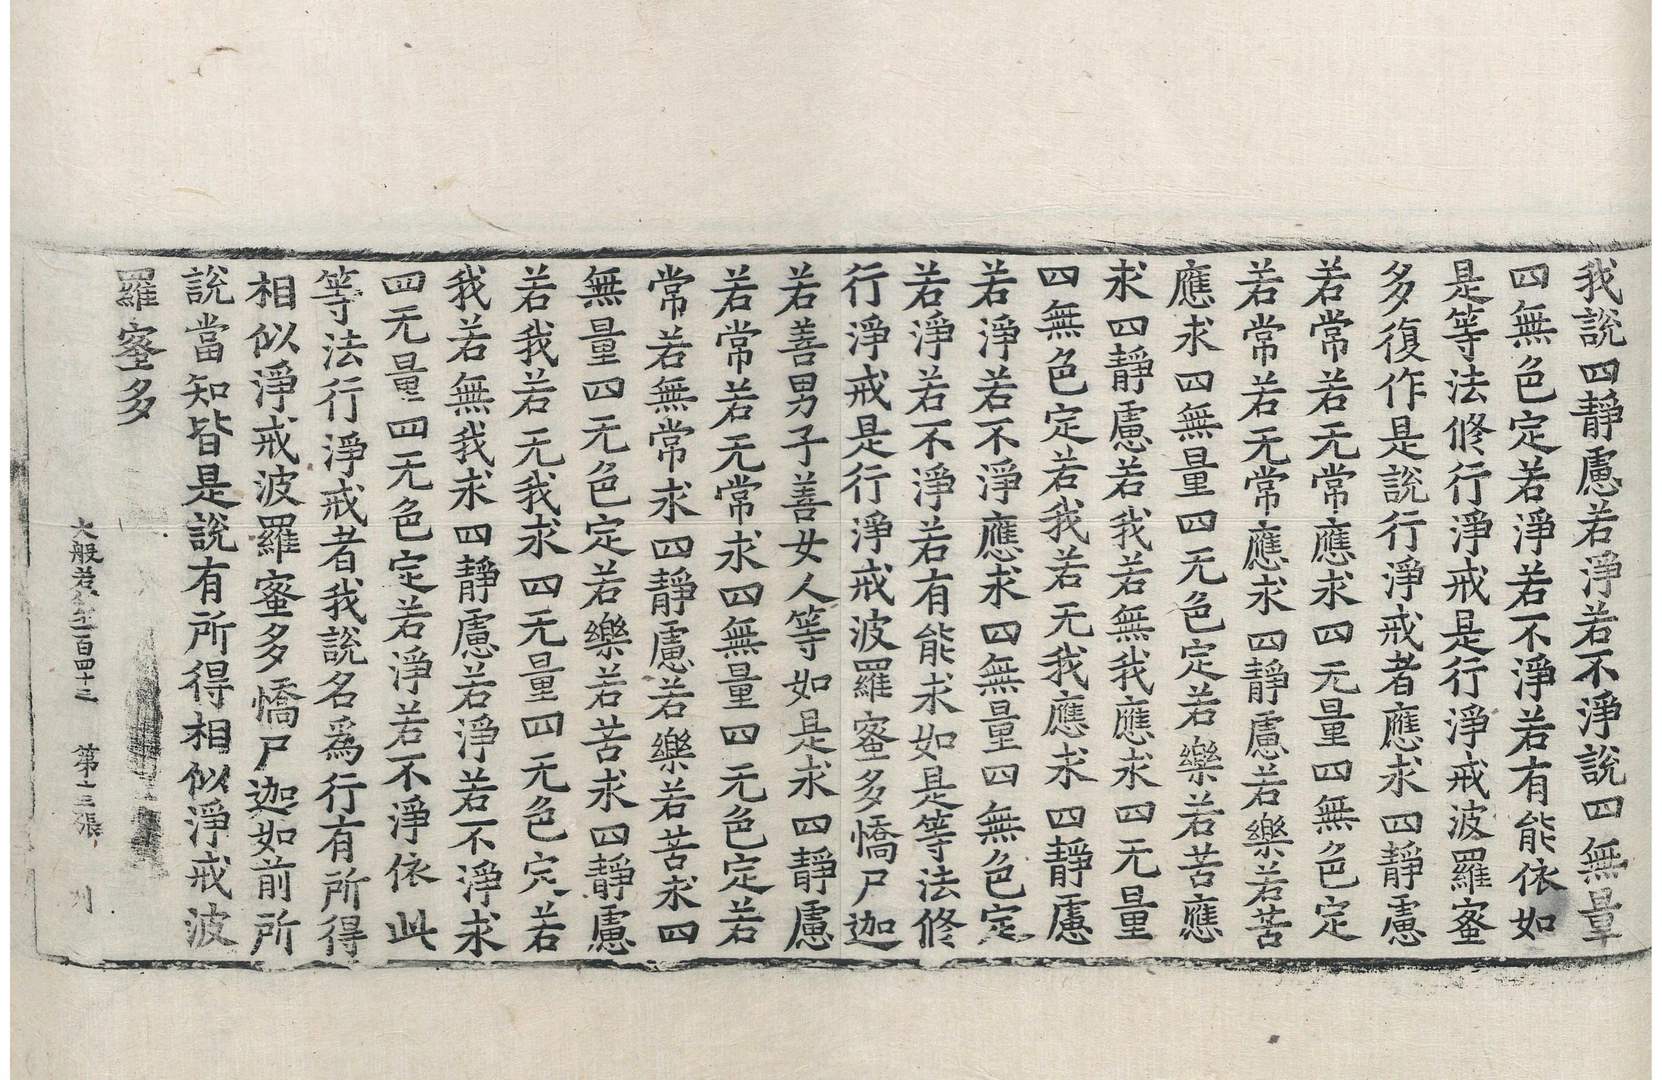 我說四靜慮若淨若不淨說四無量
四無色定若淨若不淨若有能依如
是等法修行淨戒是行淨戒波羅蜜
多復作是說行淨戒者應求四靜慮
若常若无常應求四无量四無色定
若常若无常應求四靜慮若樂若苦
應求四無量四无色定若樂若苦應
求四靜慮若我若無我應求四无量
四無色定若我若无我應求四靜慮
若淨若不淨應求四無量四無色定
若淨若不淨若有能求如是等法修
行淨戒是行淨戒波羅蜜多憍尸迦
若善男子善女人等如是求四靜慮
若常若无常求四無量四无色定若
常若無常求四靜慮若樂若苦求四
無量四无色定若樂若苦求四靜慮
若我若无我求四无量四无色定若
我若無我求四靜慮若淨若不淨求
四无量四无色定若淨若不淨依此
等法行淨戒者我說名爲行有所得
相似淨戒波羅蜜多憍尸迦如前所
說當知皆是說有所得相似淨戒波
羅蜜多
大般若 百四十二 第十三張